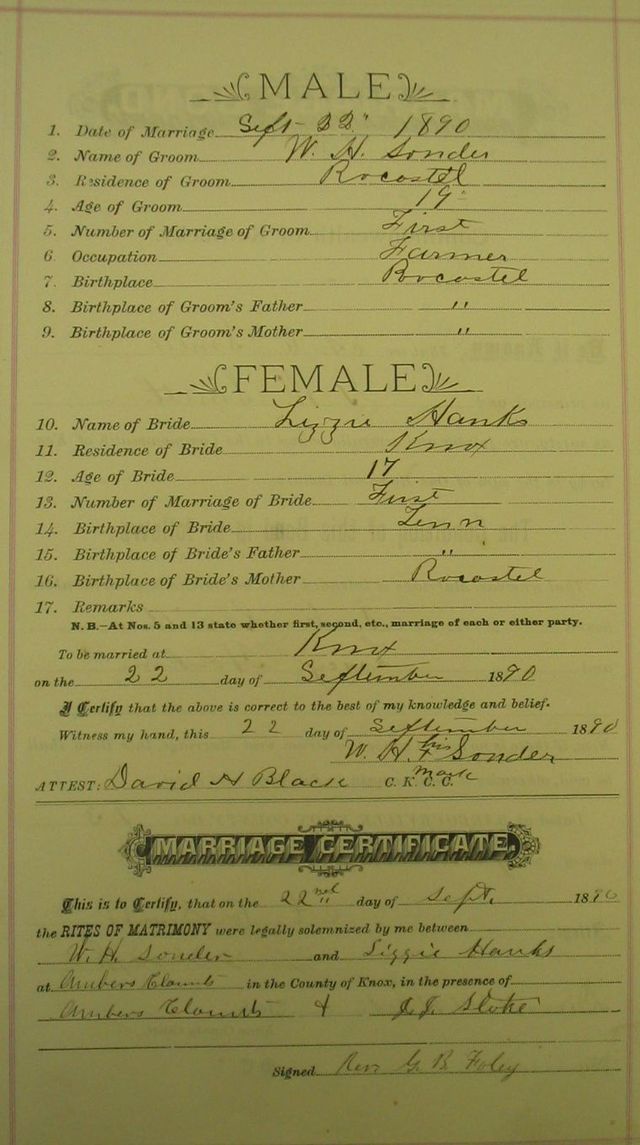 MALE
1. Date of Marriage Sept 22" 1890
2. Name of Groom W. H. Sonder
3. Residence of Groom Rocastel
4. Age of Groom 19
5. Number of Marriage of Groom First
6. Occupation Farmer
7. Birthplace Rocastel
8. Birthplace of Groom's Father "
9. Birthplace of Groom's Mother "
FEMALE
10. Name of Bride Lizzie Hanks
11. Residence of Bride Knox
12. Age of Bride 17
13. Number of Marriage of Bride First
14. Birthplace of Bride Tenn
15. Birthplace of Bride's Father "
16. Birthplace of Bride's Mother Rocastel
17. Remarks
N. B.—At Nos. 5 and 13 state whether first, second, etc., marriage of each or either party.
To be married at Knox
on the 22 day of September 1890
I Certify that the above is correct to the best of my knowledge and belief.
Witness my hand, this 22 day of September 1890
W. H. his x mark Sonder
ATTEST: David H Black C. K. C. C.
MARRIAGE CERTIFICATE.
This is to Certify, that on the 22nd day of Sept. 1890
the RITES OF MATRIMONY were legally solemnized by me between
W. H. Sonder and Liggie Hanks
at Ambers in the County of Knox, in the presence of
Ambers & J. J.
Signed Rev G. B. Foley